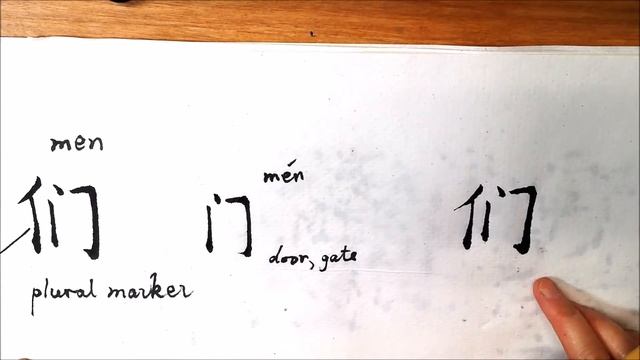 men
们
plural marker
门
mén
door, gate
们